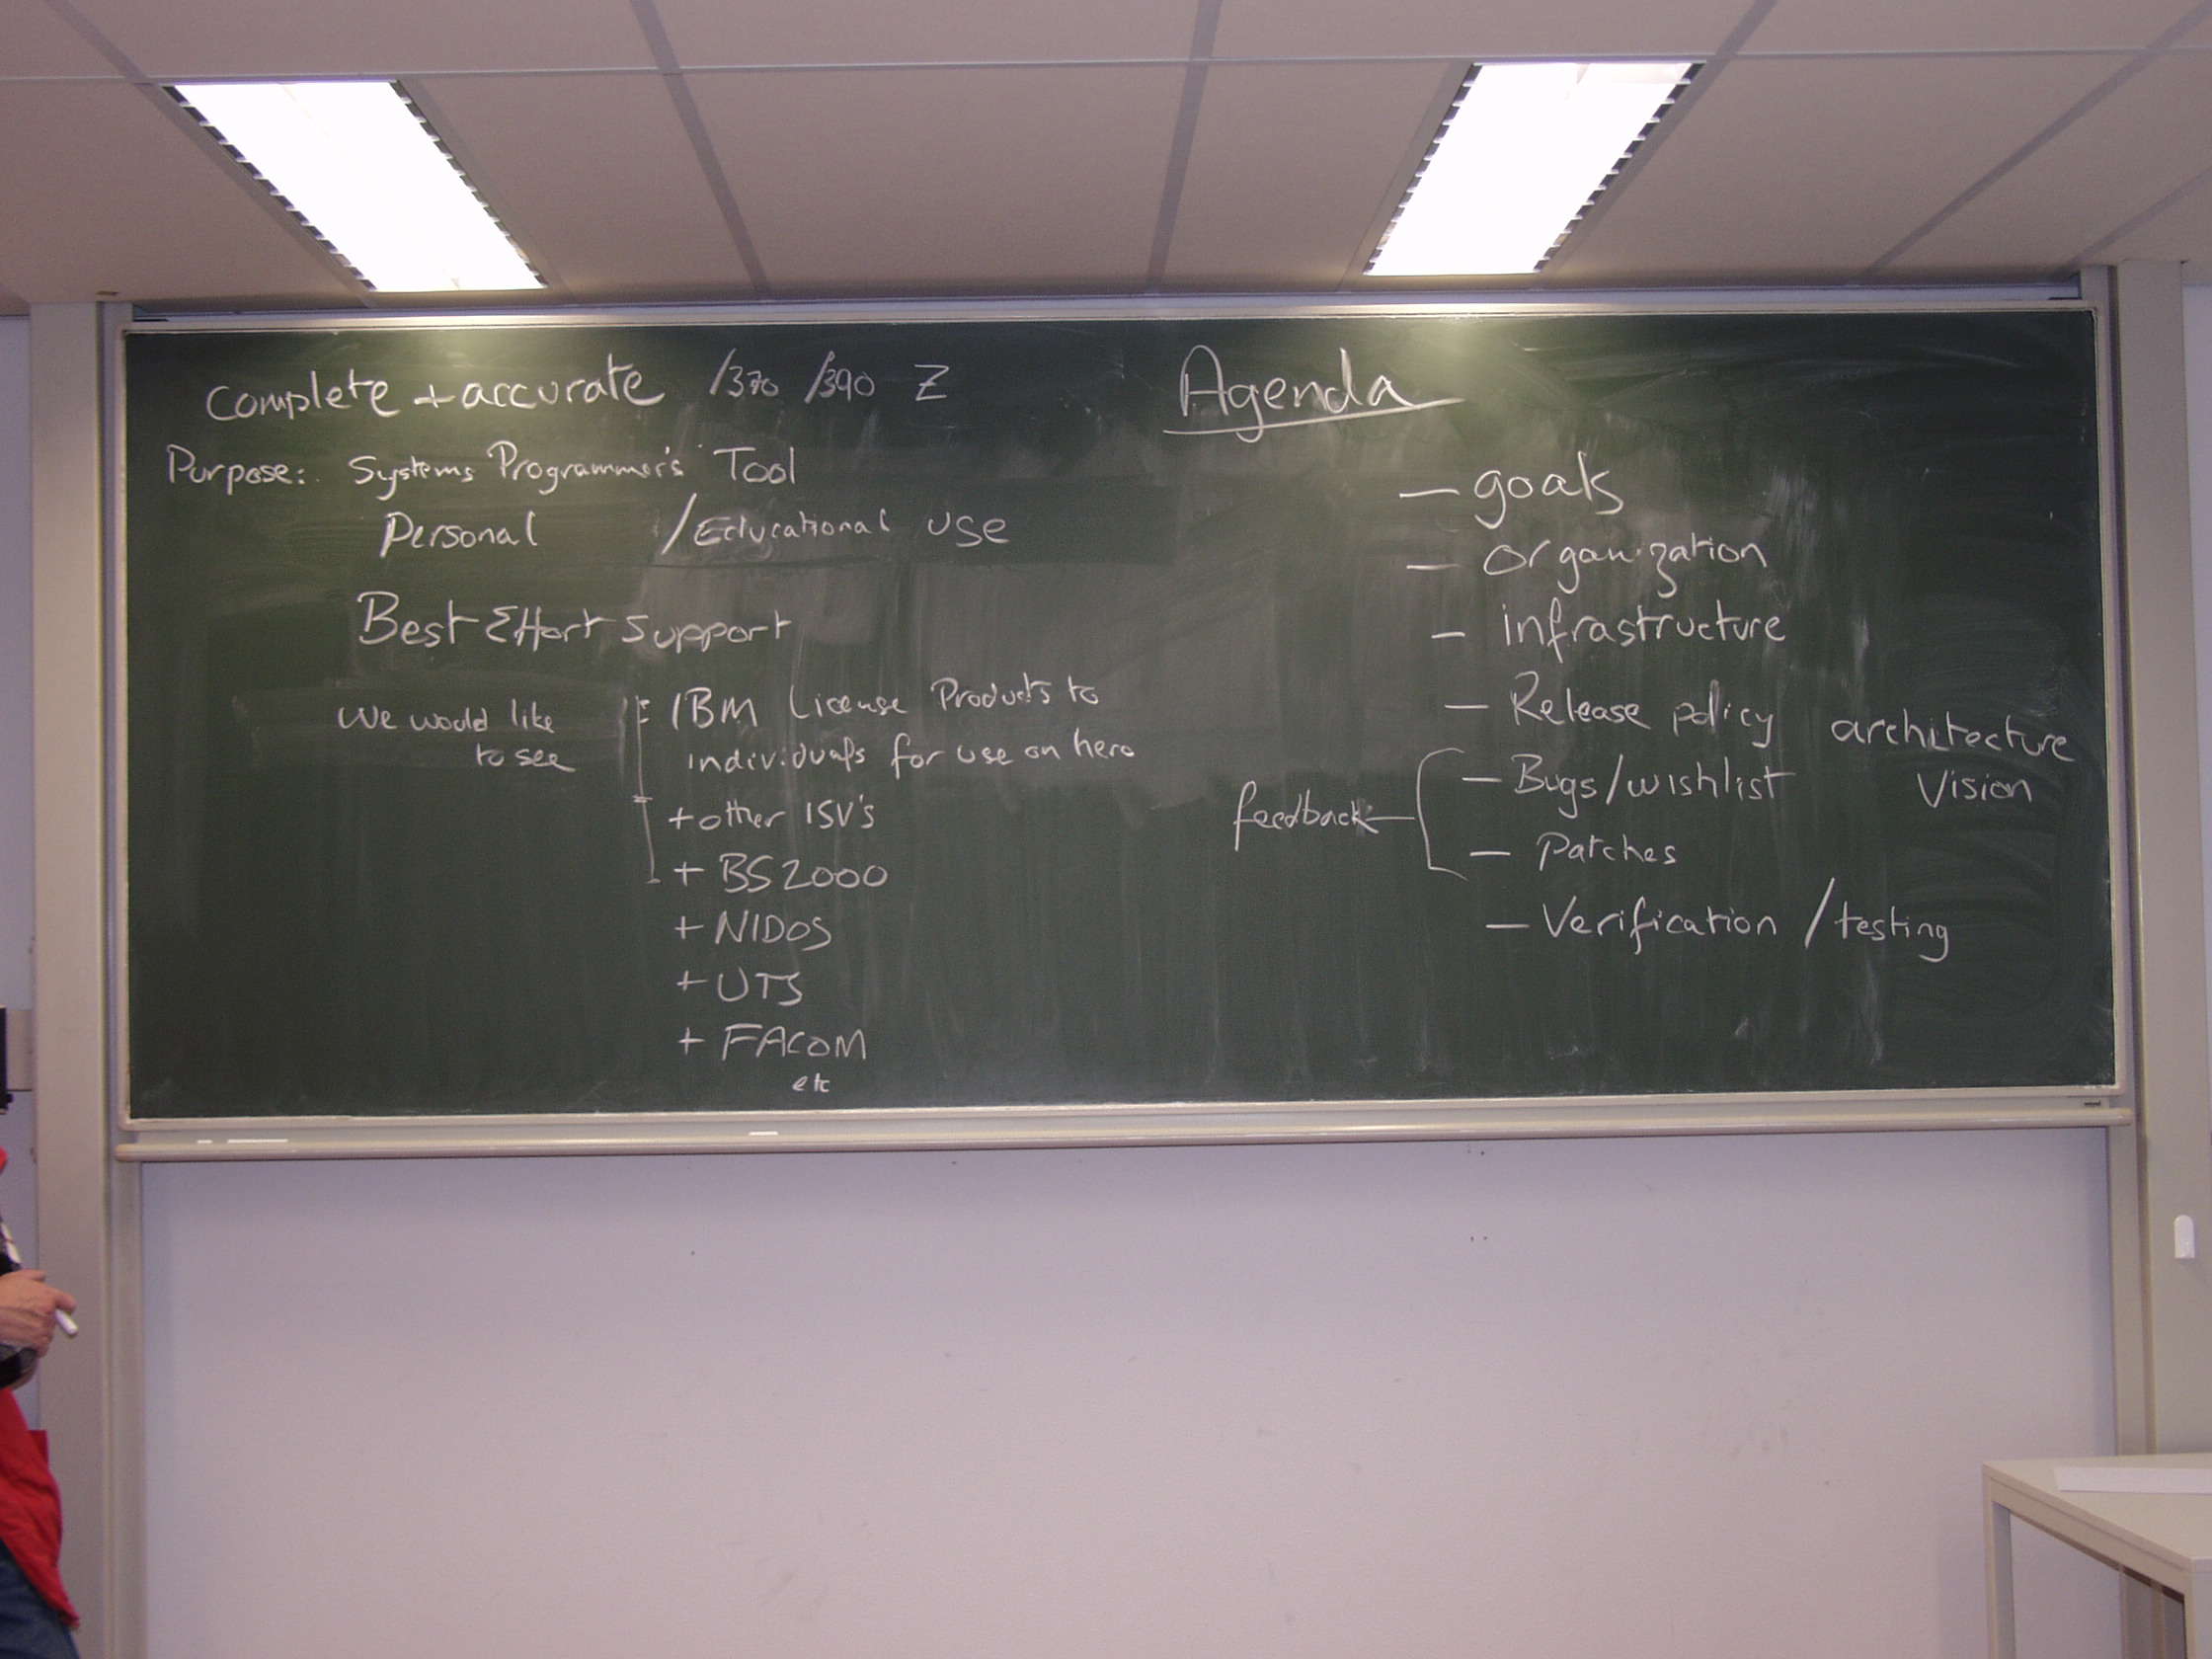 Complete + accurate /370 /390 Z
Purpose: Systems Programmer's Tool
Personal /Educational use
Best Effort Support
We would like
to see
IBM License Products to
individuals for use on herc
+ other ISV's
+ BS2000
+ NIDOS
+ UTS
+ FACOM
etc
Agenda
— goals
— organization
— infrastructure
— Release policy
architecture
Vision
feedback
— Bugs/wishlist
— Patches
— Verification / testing